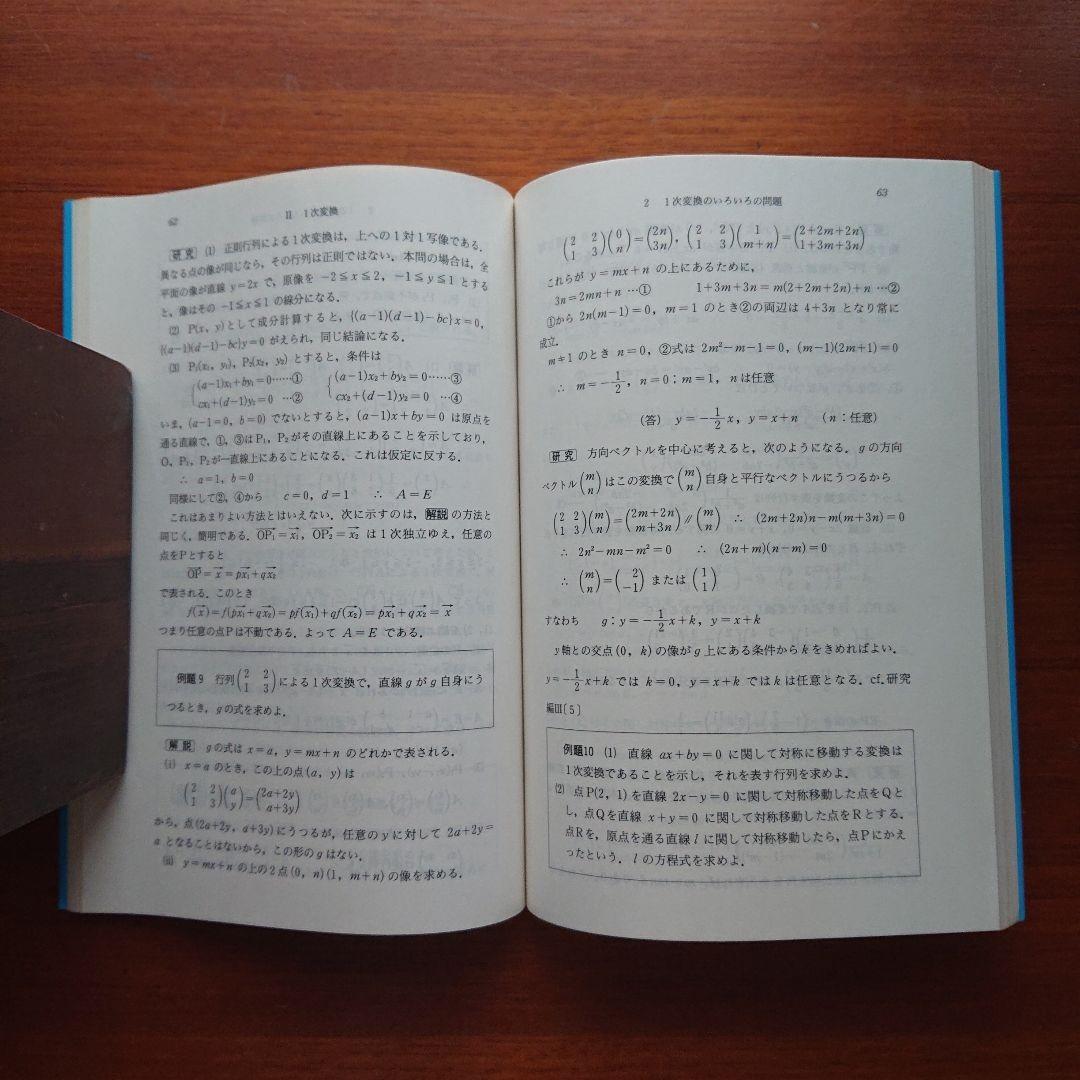 62
II 1次変換
研究 (1) 正則行列による1次変換は，上への1対1写像である．
異なる点の像が同じなら，その行列は正則ではない．本問の場合は，全
平面の像が直線 y=2x で，原像を −2≦x≦2，−1≦y≦1 とする
と，像はその −1≦x≦1 の線分になる．
(2) P(x, y)として成分計算すると，{(a−1)(d−1)−bc}x=0,
{(a−1)(d−1)−bc}y=0 がえられ，同じ結論になる．
(3) P₁(x₁, y₁), P₂(x₂, y₂) とすると，条件は
{(a−1)x₁+by₁=0……① {(a−1)x₂+by₂=0……③
cx₁+(d−1)y₁=0 …② cx₂+(d−1)y₂=0 …④
いま，(a−1=0, b=0) でないとすると，(a−1)x+by=0 は原点を
通る直線で，①，③はP₁，P₂がその直線上にあることを示しており，
O，P₁，P₂が一直線上にあることになる．これは仮定に反する．
∴ a=1, b=0
同様にして②，④から c=0, d=1 ∴ A=E
これはあまりよい方法とはいえない．次に示すのは，解説の方法と
同じく，簡明である．OP₁→=x₁→，OP₂→=x₂→ は1次独立ゆえ，任意の
点をPとすると
OP→=x→=px₁→+qx₂→
で表される．このとき
f(x→)=f(px₁→+qx₂→)=pf(x₁→)+qf(x₂→)=px₁→+qx₂→=x→
つまり任意の点Pは不動である．よって A=E である．
例題9 行列(2 2; 1 3)による1次変換で，直線gがg自身にう
つるとき，gの式を求めよ．
解説 gの式は x=a, y=mx+n のどれかで表される．
(i) x=a のとき，この上の点(a, y)は
(2 2; 1 3)(a; y)=(2a+2y; a+3y)
から，点(2a+2y, a+3y)にうつるが，任意のyに対して 2a+2y=
a となることはないから，この形のgはない．
(ii) y=mx+n の上の2点(0, n)(1, m+n)の像を求める．
2 1次変換のいろいろの問題
63
(2 2; 1 3)(0; n)=(2n; 3n), (2 2; 1 3)(1; m+n)=(2+2m+2n; 1+3m+3n)
これらが y=mx+n の上にあるために，
3n=2mn+n …① 1+3m+3n=m(2+2m+2n)+n …②
①から 2n(m−1)=0, m=1 のとき②の両辺は 4+3n となり常に
成立．
m≠1 のとき n=0, ②式は 2m²−m−1=0, (m−1)(2m+1)=0
∴ m=−1/2, n=0 ; m=1, nは任意
(答) y=−1/2x, y=x+n (n：任意)
研究 方向ベクトルを中心に考えると，次のようになる．gの方向
ベクトル(m; n)はこの変換で(m; n)自身と平行なベクトルにうつるから
(2 2; 1 3)(m; n)=(2m+2n; m+3n)∥(m; n) ∴ (2m+2n)n−m(m+3n)=0
∴ 2n²−mn−m²=0 ∴ (2n+m)(n−m)=0
∴ (m; n)=(2; −1) または (1; 1)
すなわち g：y=−1/2x+k, y=x+k
y軸との交点(0, k)の像がg上にある条件からkをきめればよい．
y=−1/2x+k では k=0, y=x+k ではkは任意となる．cf.研究
編III〔5〕
例題10 (1) 直線 ax+by=0 に関して対称に移動する変換は
1次変換であることを示し，それを表す行列を求めよ．
(2) 点P(2, 1)を直線 2x−y=0 に関して対称移動した点をQと
し，点Qを直線 x+y=0 に関して対称移動した点をRとする．
点Rを，原点を通る直線 l に関して対称移動したら，点Pにかえ
ったという．l の方程式を求めよ．